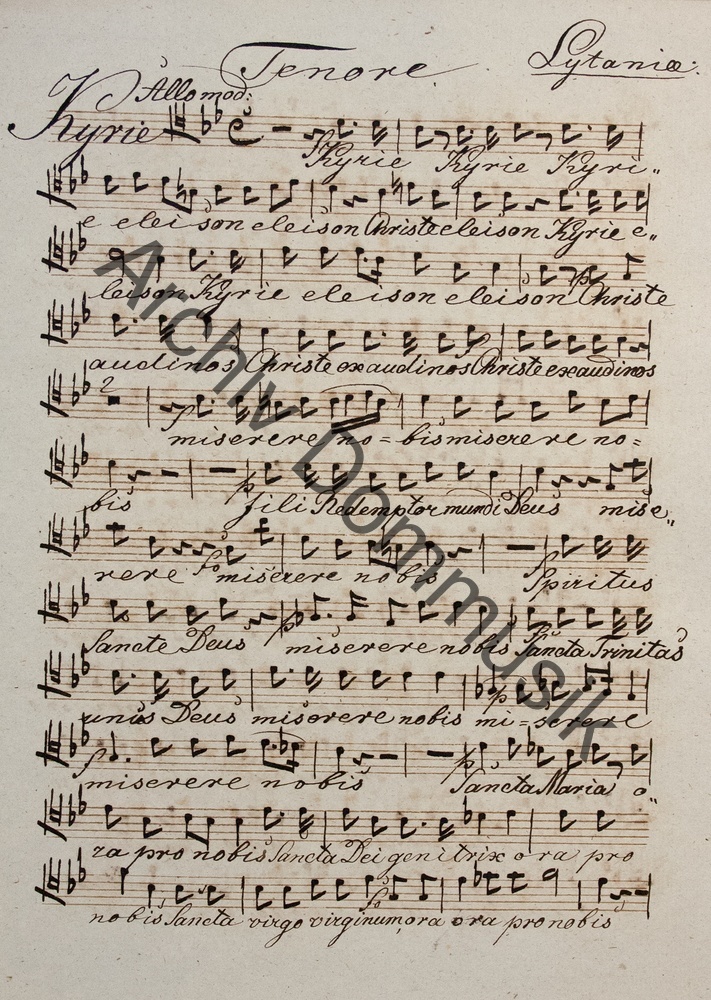 Tenore. Lytaniæ.
Kyrie Allo mod:
Kyrie Kyrie Kyri"
e eleison eleison Christe eleison Kyrie e"
leison Kyrie eleison eleison Christe
audi nos Christe exaudi nos Christe exaudi nos
2
fo miserere no = bis miserere no =
bis p Fili Redemptor mundi Deus mise"
rere fo miserere nobis Spiritus
Sancte Deus p miserere nobis fo Sancta Trinitas
unus Deus miserere nobis p mi = serere
f miserere nobis p Sancta Maria o"
ra pro nobis Sancta Dei genitrix ora pro
nobis Sancta virgo virginum, fo ora ora pro nobis
Archiv Dommusik